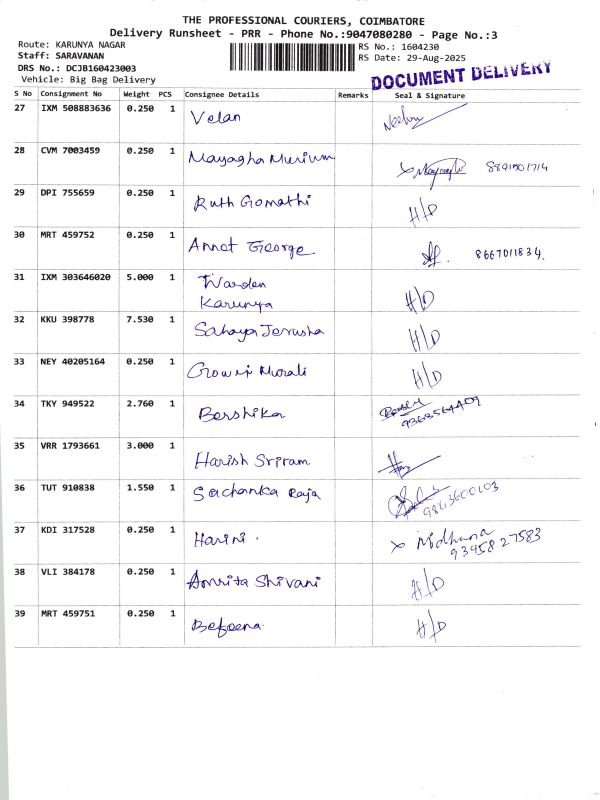 THE PROFESSIONAL COURIERS, COIMBATORE
Delivery Runsheet - PRR - Phone No.:9047080280 - Page No.:3
Route: KARUNYA NAGAR
Staff: SARAVANAN
DRS No.: DCJB160423003
Vehicle: Big Bag Delivery
RS No.: 1604230
RS Date: 29-Aug-2025
DOCUMENT DELIVERY
S No Consignment No Weight PCS Consignee Details Remarks Seal & Signature
27 IXM 508883636 0.250 1 Velan
28 CVM 7003459 0.250 1 Mayagha Murium
29 DPI 755659 0.250 1 Ruth Gomathi H/D
30 MRT 459752 0.250 1 Annot George 8667011834.
31 IXM 303646020 5.000 1 Warden
Karunya H/D
32 KKU 398778 7.530 1 Sahaya Jerusha H/D
33 NEY 40205164 0.250 1 Gower Murali H/D
34 TKY 949522 2.760 1 Bershika
35 VRR 1793661 3.000 1 Harish Sriram
36 TUT 910838 1.550 1 Sachanka Raja
37 KDI 317528 0.250 1 Harini. x Midhuna
9345827583
38 VLI 384178 0.250 1 Amrita Shivani H/D
39 MRT 459751 0.250 1 H/D